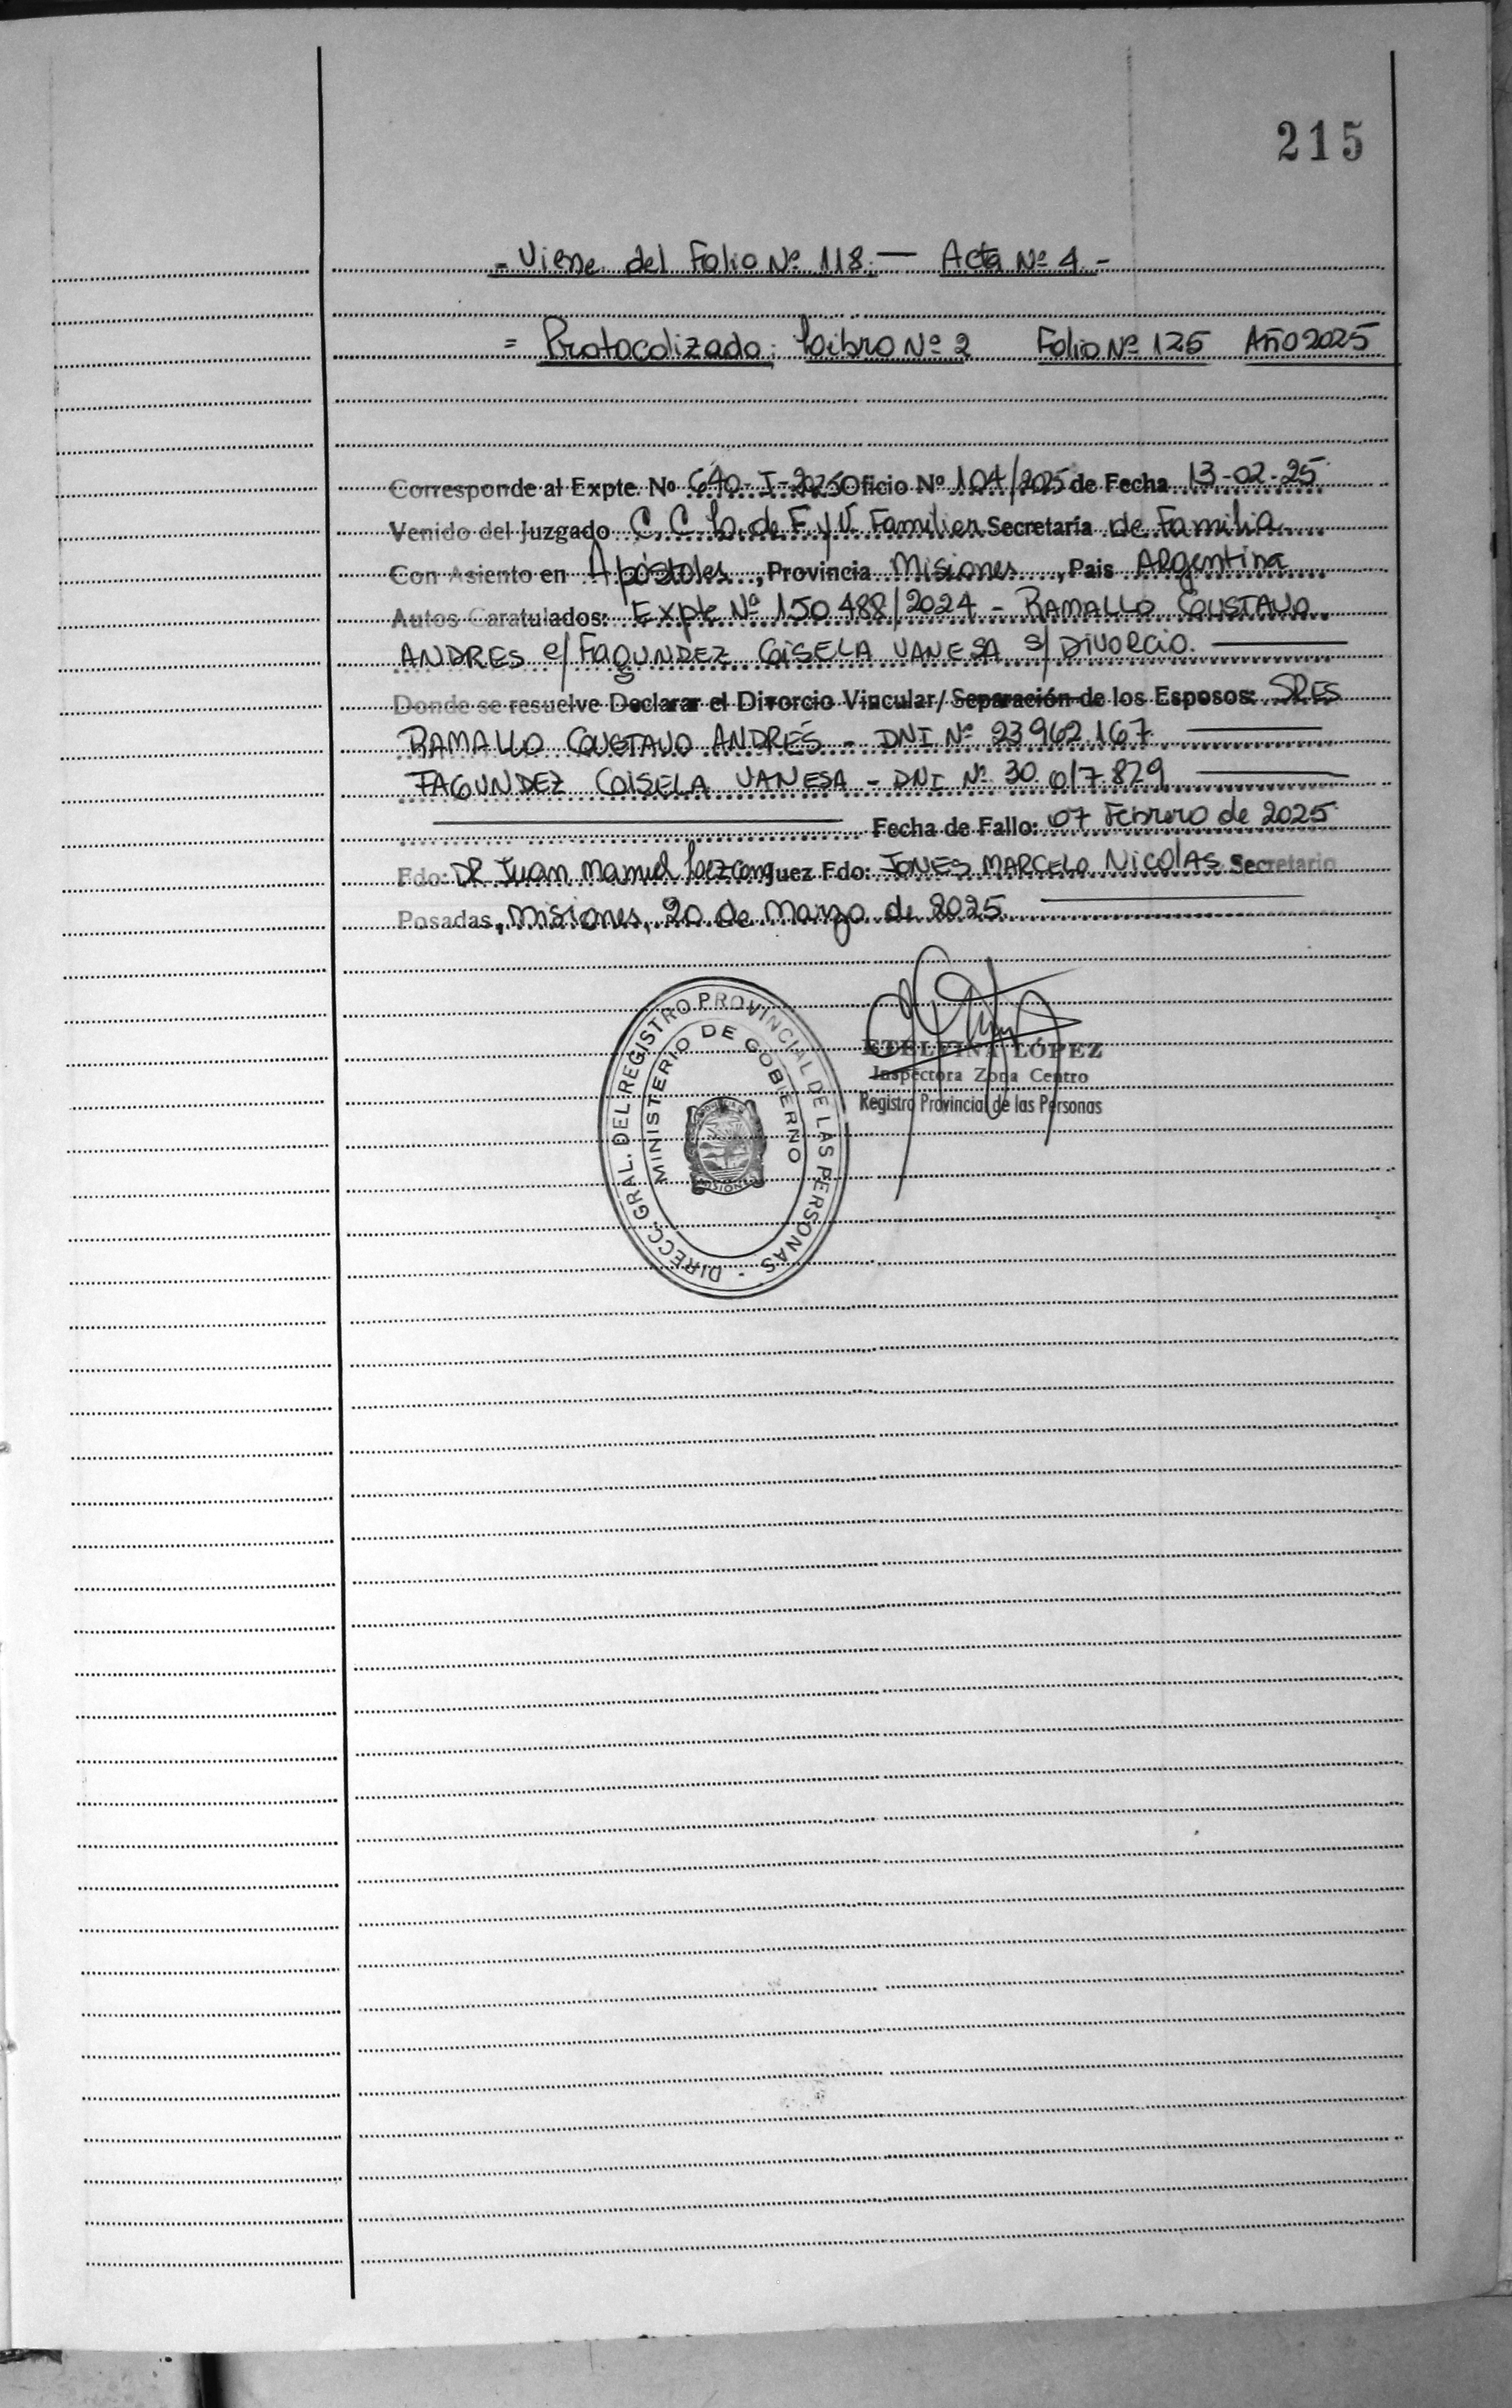 215
- Viene del Folio Nº 118. — Acta Nº 4 -
= Protocolizado: Libro Nº 2 Folio Nº 125 Año 2025
Corresponde al Expte. Nº 640-I-2025 Oficio Nº 104/2025 de Fecha 13-02-25
Venido del Juzgado C. C. L. de F. y V. Familiar Secretaría de Familia
Con Asiento en Apóstoles, Provincia Misiones, Pais Argentina
Autos Caratulados: Expte Nº 150.488/2024 - RAMALLO GUSTAVO
ANDRES c/ FAGUNDEZ GISELA VANESA s/ DIVORCIO.
Donde se resuelve Declarar el Divorcio Vincular/ Separación de los Esposos: SRES
RAMALLO GUSTAVO ANDRÉS - DNI Nº 23.962.167
FAGUNDEZ GISELA VANESA - DNI Nº 30.017.829
Fecha de Fallo: 07 Febrero de 2025
Fdo: DR Juan Manuel Juez Fdo: JONES MARCELO NICOLAS Secretario
Posadas, Misiones, 20 de Marzo de 2025
DIRECC. GRAL. DEL REGISTRO PROVINCIAL DE LAS PERSONAS -
MINISTERIO DE GOBIERNO
MISIONES
ETELVINA LÓPEZ
Inspectora Zona Centro
Registro Provincial de las Personas